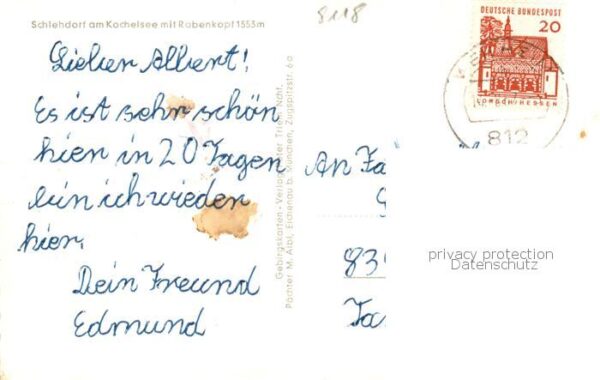 Schlehdorf am Kochelsee mit Rabenkopf 1553m
8118
Lieber Albert!
Es ist sehr schön
hier in 20 Tagen
bin ich wieder
hier.
Dein Freund
Edmund
Gebirgskarten-Verlag
Pächter M. Albl, Eichenau b. München, Zugspitzstr. 6a
DEUTSCHE BUNDESPOST
20
LORSCH/HESSEN
812
An Fa
839
Ta
privacy protection
Datenschutz